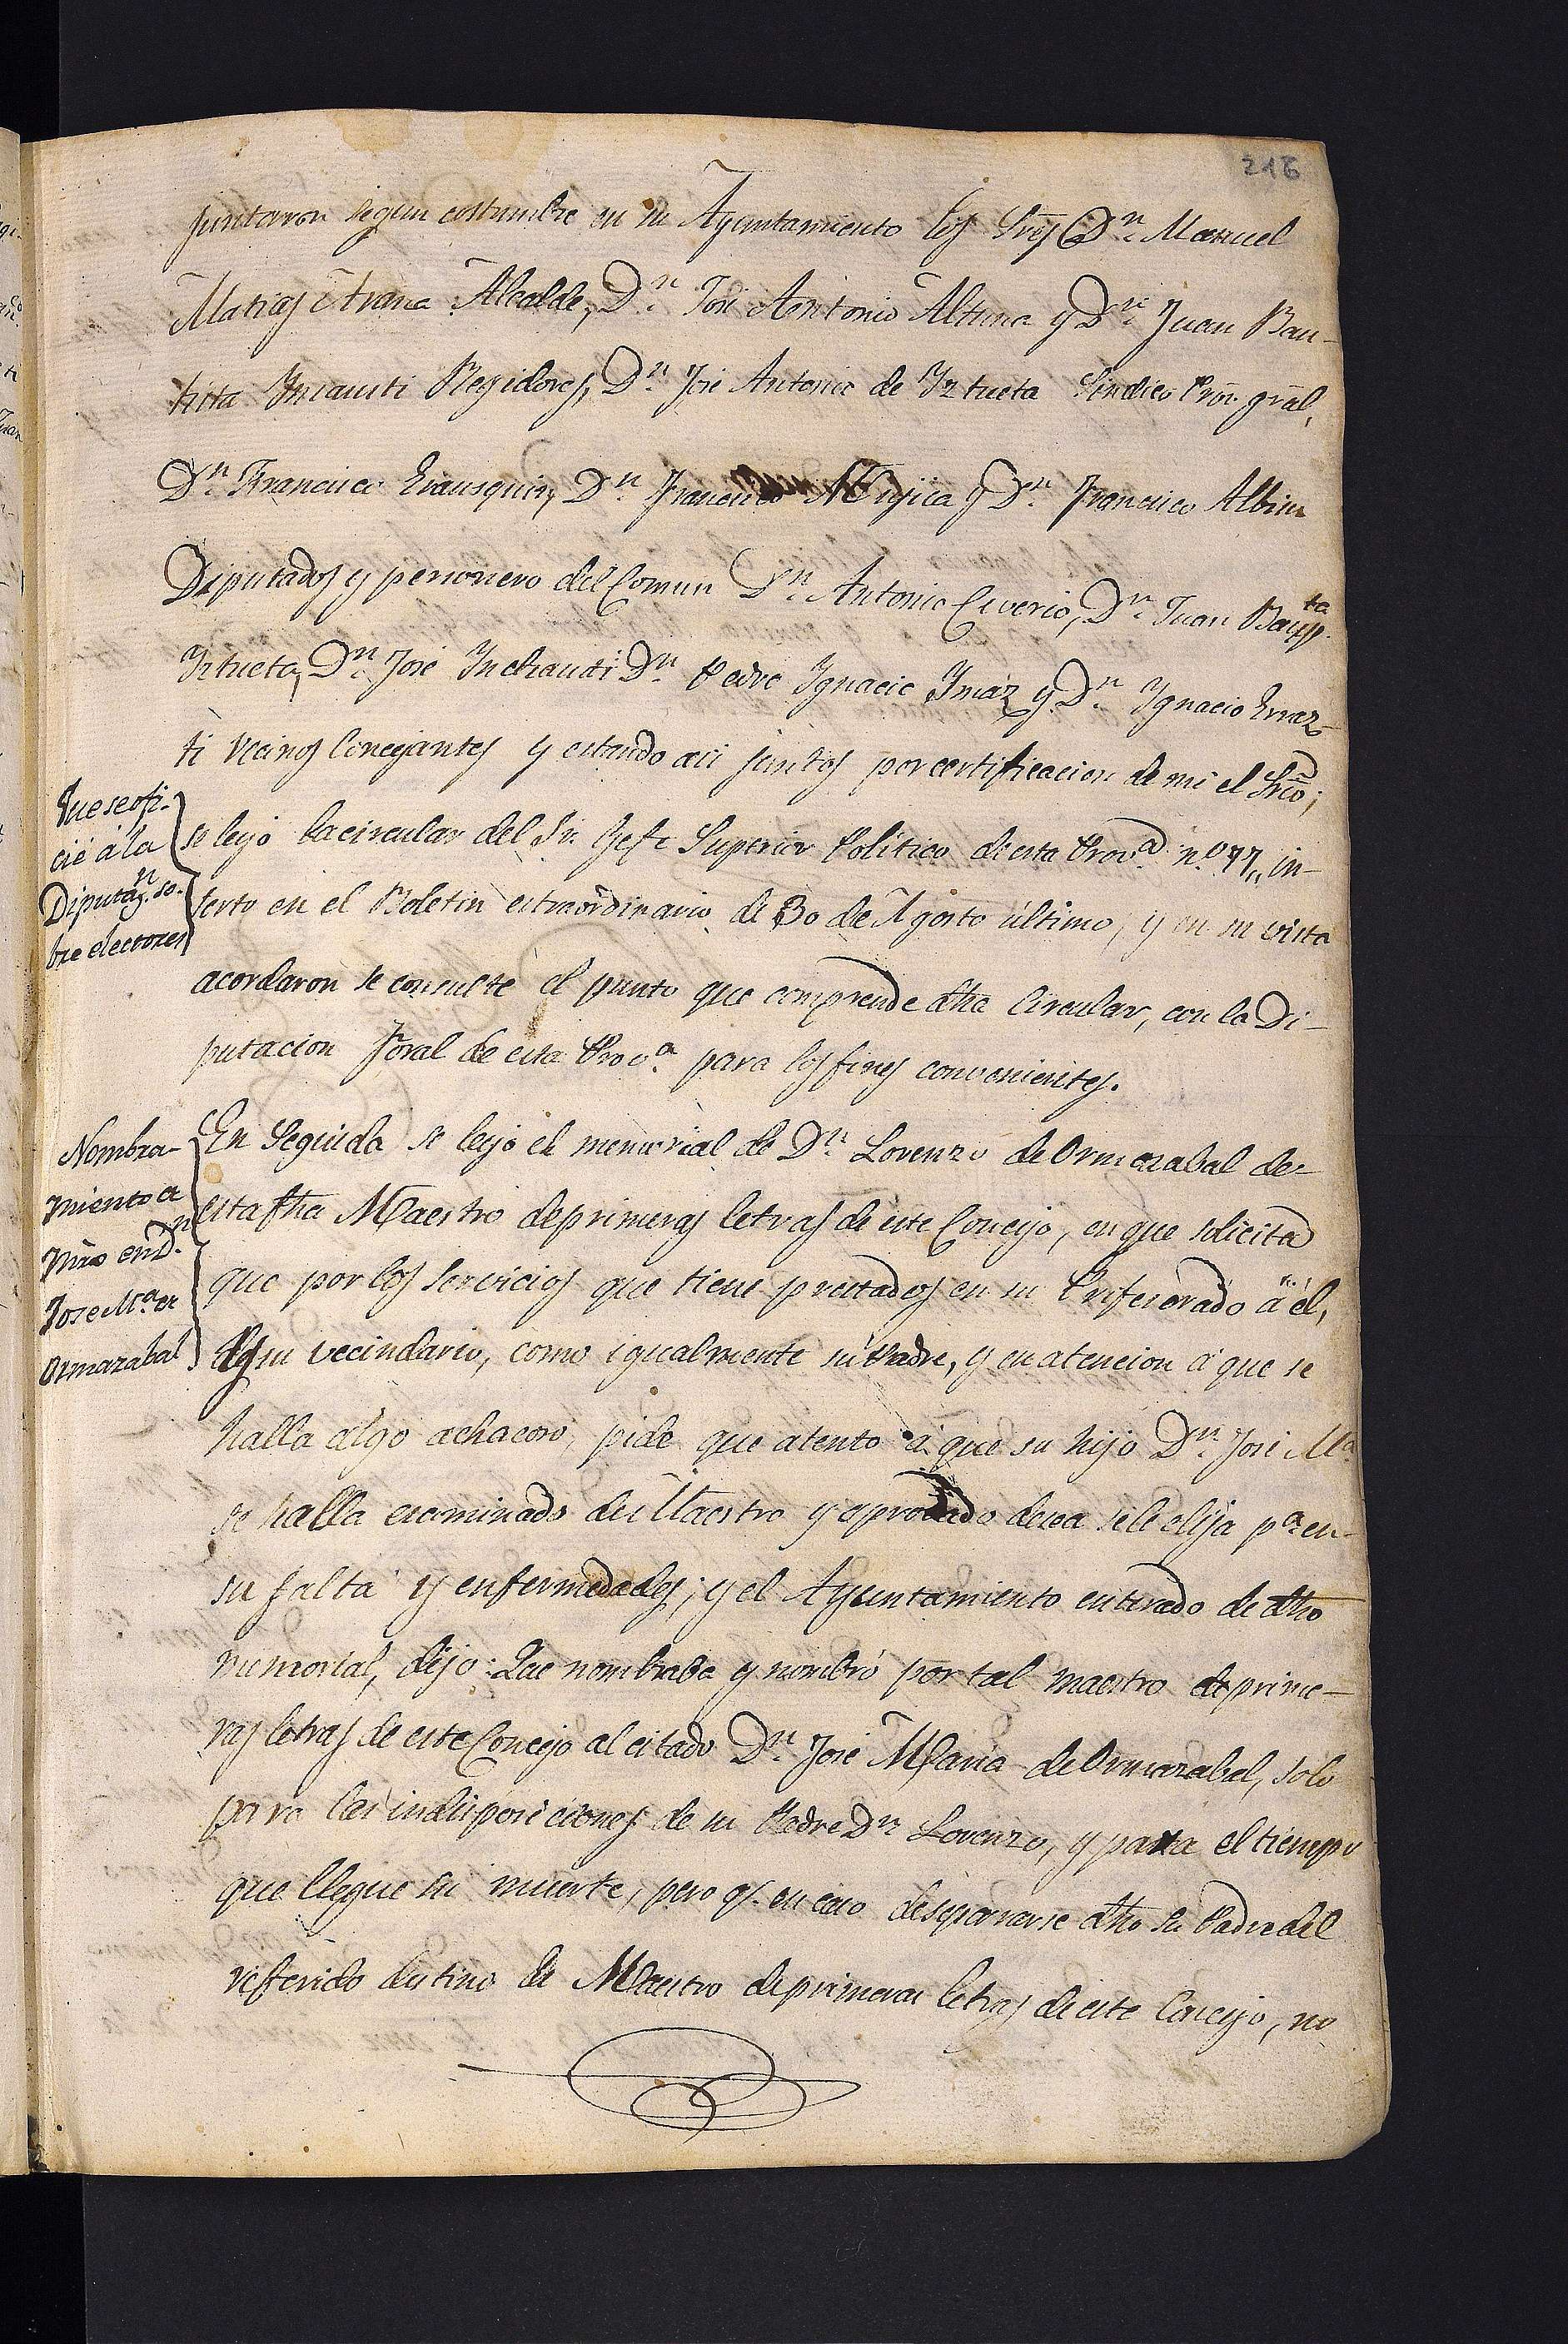 216
juntaron segun costumbre en su Ayuntamiento los Sres Dn. Manuel
Matias Arana Alcalde, Dn. José Antonio Altuna y Dn. Juan Bau-
tista Incausti Regidores, Dn. José Antonio de Iztueta Sindico Pror. gral,
Dn. Francisco Erausquin, Dn. Francisco Mujica y Dn. Francisco Albisu
Diputados y personero del Comun Dn. Antonio Eiverio, Dn. Juan Baupta.
Iztueta, Dn. José Inchausti Dn. Pedro Ignacio Imaz y Dn. Ignacio Erraz-
ti vecinos Concejantes y estando asi juntos por certificacion de mi el Srio;
Que se ofi-
cié á la
Diputazn. so-
bre electores
se leyó la circular del Sr. Jefe Superior Politico de esta Prova. no. 77,, in-
serto en el Boletin estraordinario de 30 de Agosto último, y en su vista
acordaron se consulte el punto que comprende dha Circular, con la Di-
putacion foral de esta Prova. para los fines convenientes.
Nombra-
miento a
mro en Dn.
Jose Ma. de
Ormazabal
En Seguida se leyó el memorial de Dn. Lorenzo de Ormazabal de
esta fha Maestro de primeras letras de este Concejo, en que solicita
que por los servicios que tiene prestados en su Profesorado á él,
y su vecindario, como igualmente su Padre, y en atencion á que se
halla algo achacoso, pide que atento á que su hijo Dn. José Ma.
se halla examinado de Maestro y aprobado desea se le elija pa. en
su falta y enfermedades; y el Ayuntamiento enterado de dho
memorial, dijo: Que nombraba y nombró por tal maestro de prime-
ras letras de este Concejo al citado Dn. José Maria de Ormazabal, solo
para las indisposiciones de su Padre Dn. Lorenzo, y para el tiempo
que llegue su muerte, pero q. en caso de separarse dho su Padre del
referido destino de Maestro de primeras letras de este Concejo, no